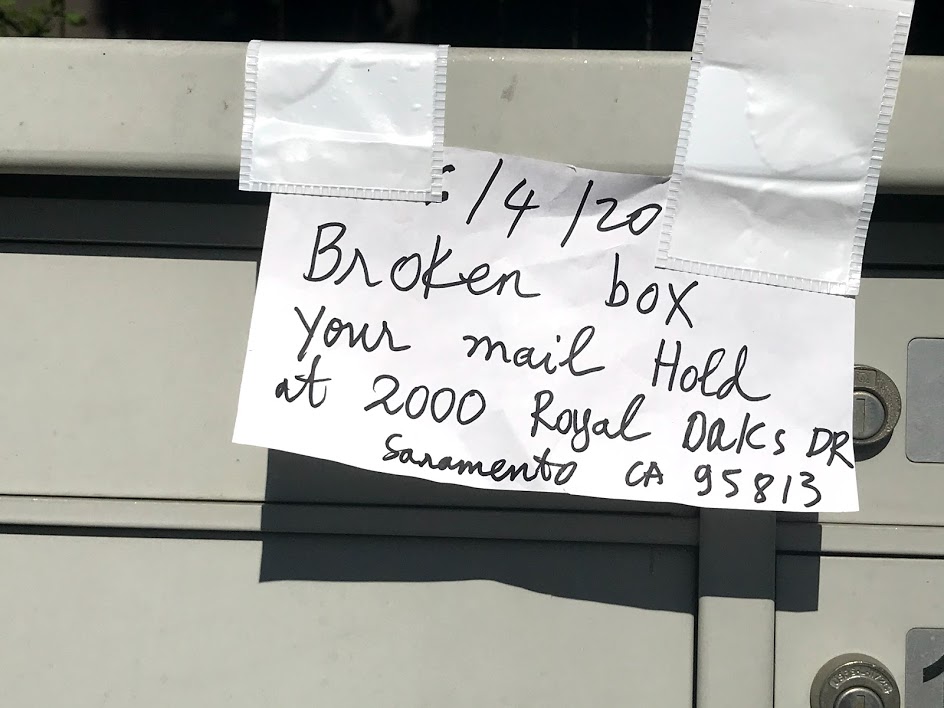 /4/20
Broken box
Your mail Hold
at 2000 Royal Oaks DR
Saramento CA 95813